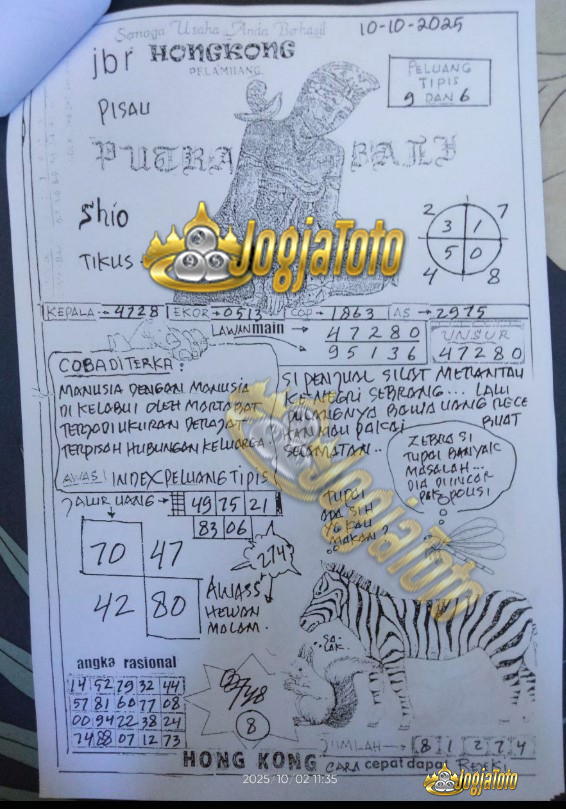 Semoga Usaha Anda Berhasil
10-10-2025
jbr HONGKONG
PELAMIIANG
PELUANG
TIPIS
9 DAN 6
PISAU
PUTRA BALI
Shio
TIKUS
2 7
3 1
5 0
4 8
JogjaToto
KEPALA → 4728 EKOR → 0513 COP → 1863 AS → 2975
LAWAN main → 47280
95136
UNSUR
47280
COBA DITERKA:
MANUSIA DENGAN MANUSIA
DI KELABUI OLEH MARTABAT
TERJADI UKURAN DERAJAT
TERPISAH HUBUNGAN KELUARGA
AWAS! INDEX PELUANG TIPIS
SI PENJUAL SILAT MERANTAU
KE NEGRI SEBRANG... LALU
BAWA UANG RECE
BUAT
PAKAI
SECAMATAN..
ZEBRA SI
TUPAI BANYAK
MASALAH...
DIA DIINCAR
POLISI
TUPAI
ADA SIH
YG KAU
MAKAN?
JogjaToto
JALUR UANG → 49 75 21
83 06
274?
70 47
42 80
AWASS
HEWAN
MALAM.
SA-
LAK.
angka rasional
14 52 79 32 44
57 81 60 77 08
00 94 22 38 24
74 88 07 12 73
8
JUMLAH → 8 1 2 7 4
HONG KONG CARA cepat dapat REJEKI
2025/10/02 11:35
JogjaToto